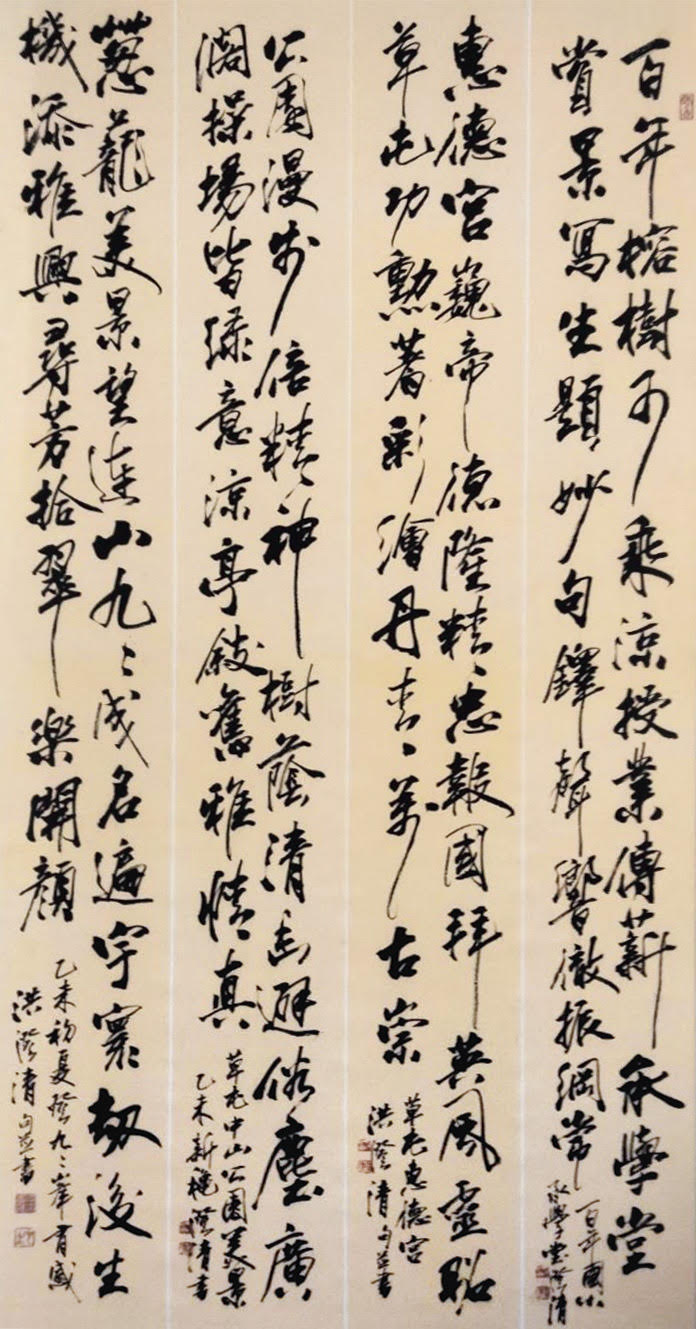 百年榕樹可乘涼授業傳薪承學堂
賞景寫生題妙句鐸聲響徹振綱常
百年國小
承學堂澄清
惠德宮巍帝德隆精忠報國拜英風靈昭
草屯功勳著彩繪丹青萬古崇
草屯惠德宮
洪澄清句並書
公園漫步倍精神樹蔭清幽避俗塵廣
闊操場皆綠意涼亭敍舊雅情真
草屯中山公園美景
乙未新穐澄清書
蔥蘢美景望連山九〻成名遍宇寰劫後生
機添雅興尋芳拾翠樂開顏
乙未初夏登九〻峯有感
洪澄清句並書